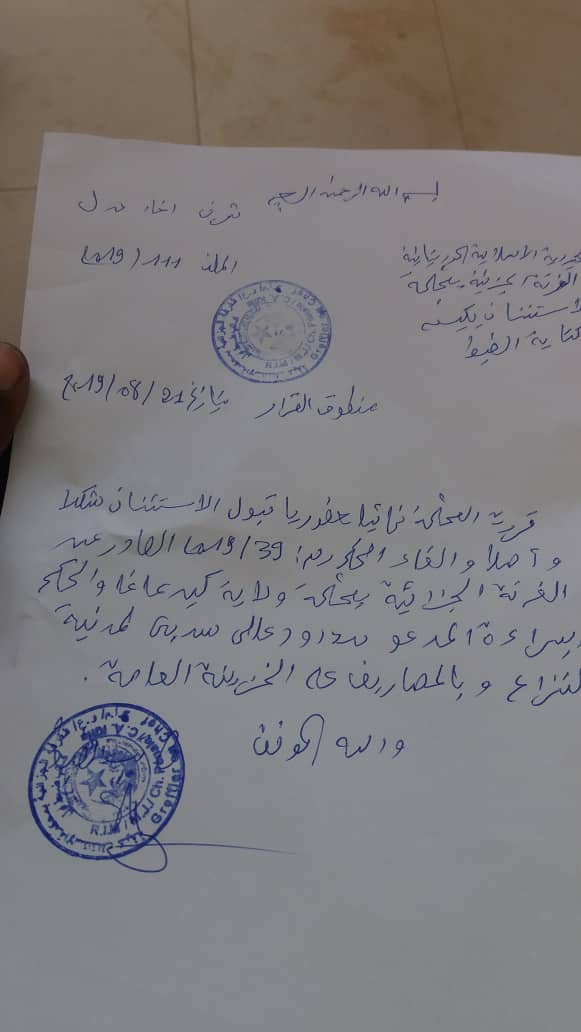 بسم الله الرحمن الرحيم
شرف إخاء عدل
الجمهورية الإسلامية الموريتانية
الغرفة الجزائية بمحكمة
الاستئناف بكيفه
كتابة الضبط
الملف 111/2019
منطوق القرار بتاريخ 21/08/2019
قررت المحكمة نهائيا حضوريا قبول الاستئناف شكلا
و أصلا و الغاء الحكم رقم: 39/2019 الصادر عن
الغرفة الجزائية بمحكمة ولاية كيديماغا والحكم
ببراءة المدعو سدود عالي
النزاع و بالمصاريف على الخزينة العامة.
والله الموفق
Greffier